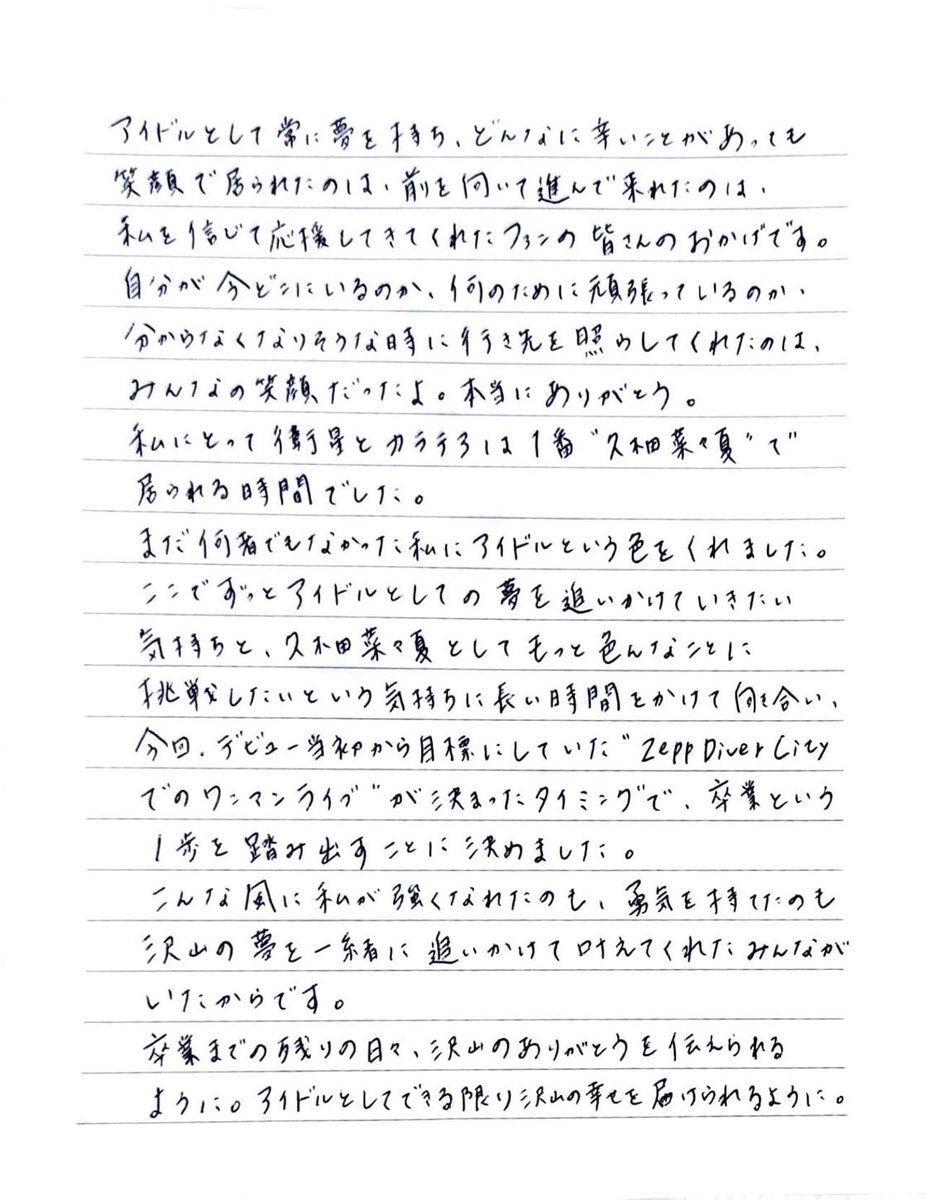 アイドルとして常に夢を持ち、どんなに辛いことがあっても
笑顔で居られたのは、前を向いて進んで来れたのは、
私を信じて応援してきてくれたファンの皆さんのおかげです。
自分が今どこにいるのか、何のために頑張っているのか、
分からなくなりそうな時に行き先を照らしてくれたのは、
みんなの笑顔だったよ。本当にありがとう。
私にとって衛星とカラテアは1番"久和田菜々夏"で
居られる時間でした。
まだ何者でもなかった私にアイドルという色をくれました。
ここでずっとアイドルとしての夢を追いかけていきたい
気持ちと、久和田菜々夏としてもっと色んなことに
挑戦したいという気持ちに長い時間をかけて向き合い、
今回、デビュー当初から目標にしていた"Zepp Diver City
でのワンマンライブ"が決まったタイミングで、卒業という
1歩を踏み出すことに決めました。
こんな風に私が強くなれたのも、勇気を持てたのも
沢山の夢を一緒に追いかけて叶えてくれたみんなが
いたからです。
卒業までの残りの日々、沢山のありがとうを伝えられる
ように。アイドルとしてできる限り沢山の幸せを届けられるように。